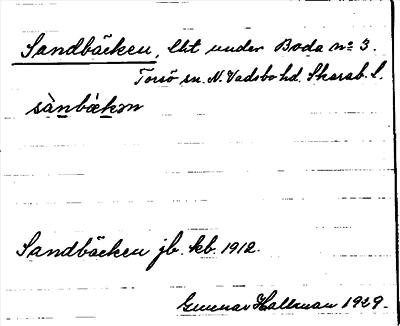 Sandbäcken, lht under Boda nº 3.
Torsö sn. N. Vadsbo hd. Skarab. l.
sànbæ̀kən
Sandbäcken jb. kb. 1912.
Gunnar Hallman 1929.